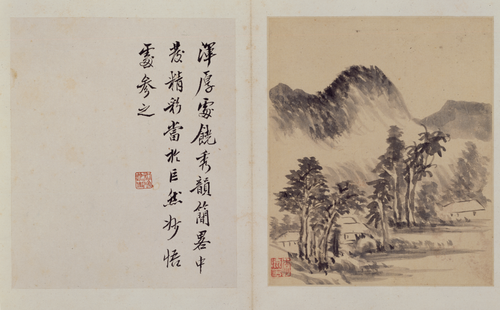 渾厚處饒秀韻簡畧中
發精彩當於巨然妙悟
處參之